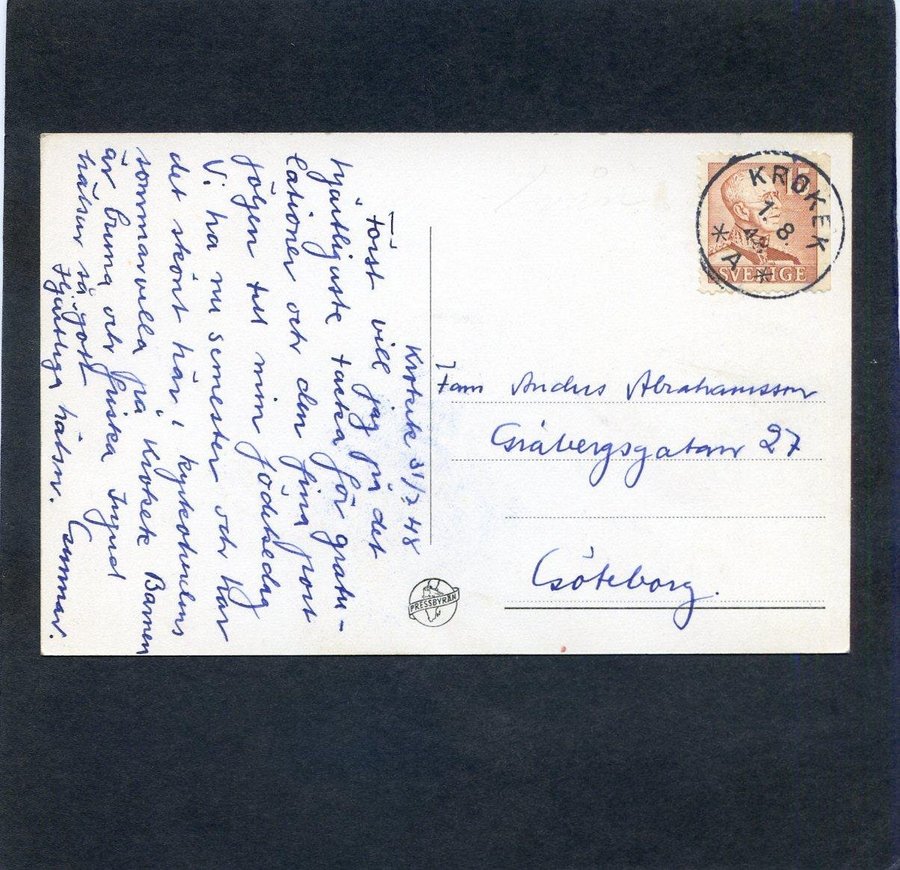 Krokek 31/7 48
Först vill jag på det
hjärtligaste tacka för gratu-
lationer och den fina port
följen till min födelsedag
Vi ha nu semester och har
det skönt här i kyrkoherdens
sommarvilla på Krokek Barnen
är bruna och friska Ingrid
hälsar så gott
Hjärtliga hälsn. Gunnar.
KROKEK
1.8.
48
* A *
SVERIGE
Fam Anders Abrahamsson
Gråbergsgatan 27
Göteborg.
PRESSBYRÅN